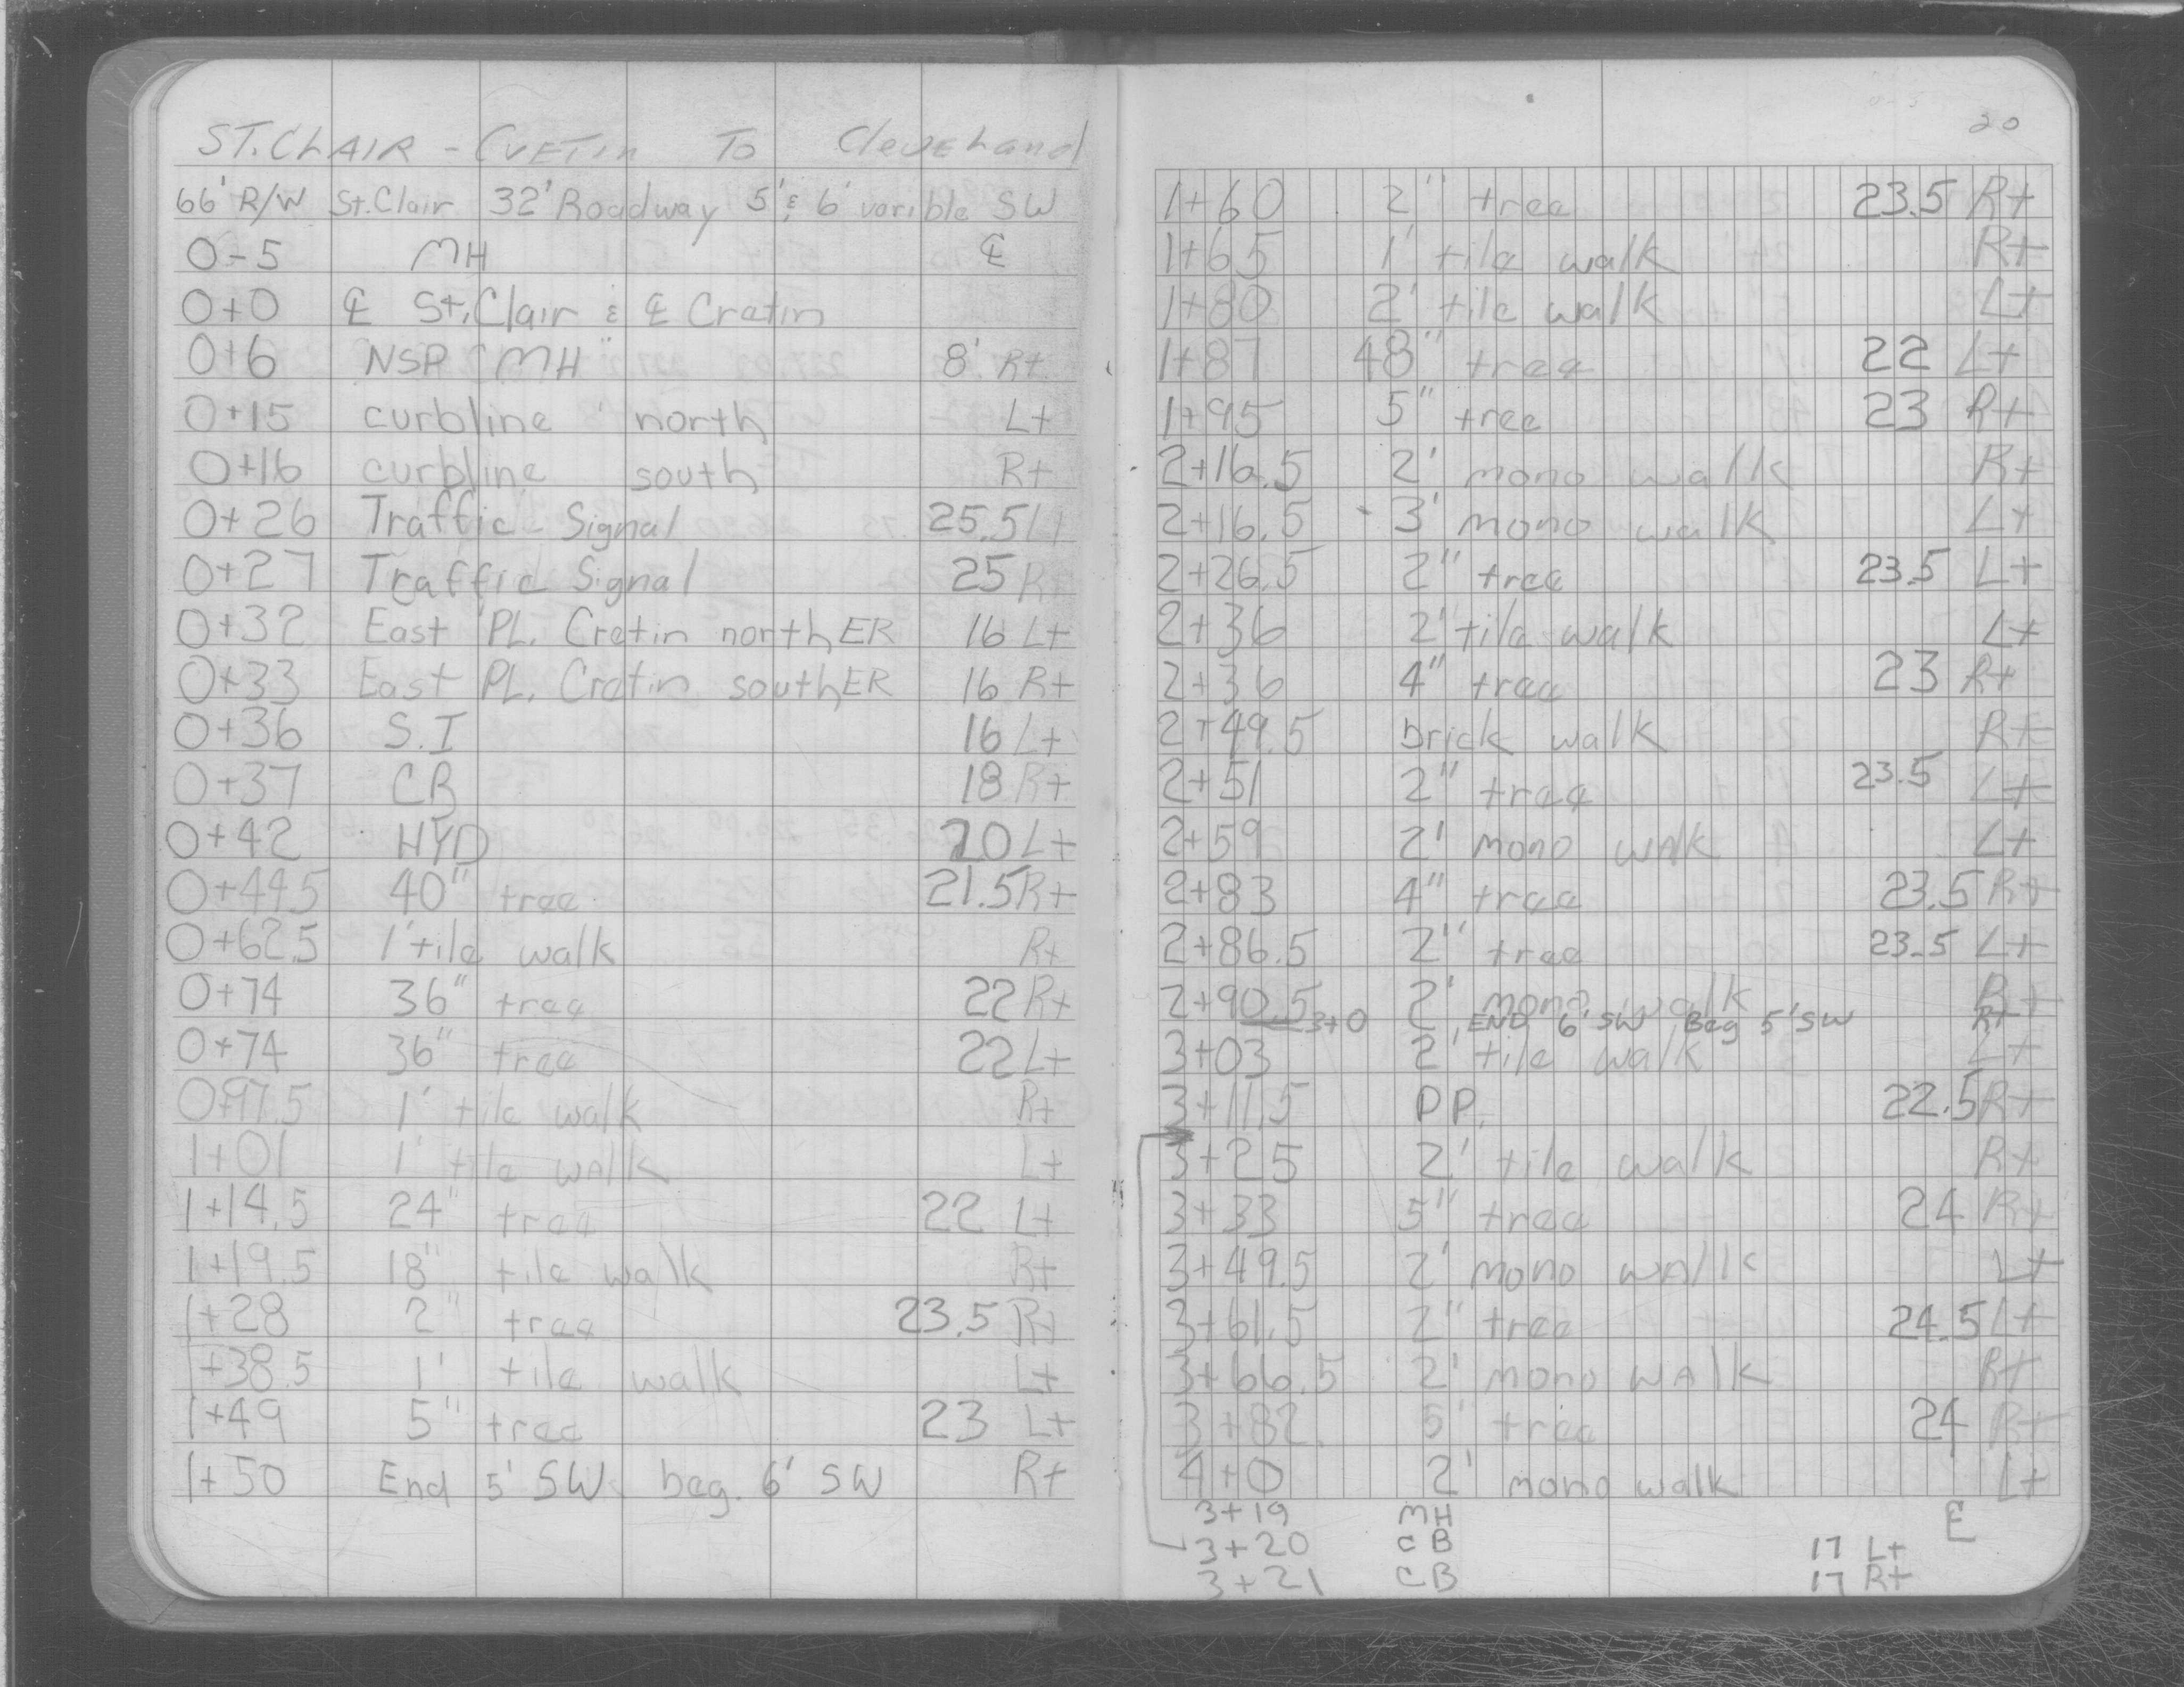 ST. CLAIR - CVETIN TO CLEVELAND
66' R/W St. Clair 32' Roadway 5' & 6' varible SW
0-5 MH ℄
0+0 ℄ St. Clair & ℄ Cretin
0+6 NSP "MH" 8' Rt
0+15 curbline north Lt
0+16 curbline south Rt
0+26 Traffic Signal 25.5 Lt
0+27 Traffic Signal 25 Rt
0+32 East PL. Cretin north ER 16 Lt
0+33 East PL. Cretin south ER 16 Rt
0+36 S.I 16 Lt
0+37 CB 18 Rt
0+42 HYD 20 Lt
0+44.5 40" tree 21.5 Rt
0+62.5 1' tile walk Rt
0+74 36" tree 22 Rt
0+74 36" tree 22 Lt
0+97.5 1' tile walk Rt
1+01 1' tile walk Lt
1+14.5 24" tree 22 Lt
1+19.5 18" tile walk Rt
1+28 2" tree 23.5 Rt
1+38.5 1' tile walk Lt
1+49 5" tree 23 Lt
1+50 End 5' SW beg. 6' SW Rt
20
1+60 2" tree 23.5 Rt
1+65 1' tile walk Rt
1+80 2' tile walk Lt
1+87 48" tree 22 Lt
1+95 5" tree 23 Rt
2+16.5 2' mono walk Rt
2+16.5 3' mono walk Lt
2+26.5 2" tree 23.5 Lt
2+36 2' tile walk Lt
2+36 4" tree 23 Rt
2+49.5 brick walk Rt
2+51 2" tree 23.5 Lt
2+59 2' mono walk Lt
2+83 4" tree 23.5 Rt
2+86.5 2" tree 23.5 Lt
2+90.5 2' mono walk Rt
3+0 END 6' SW Beg 5' SW Rt
3+03 2' tile walk Lt
3+11.5 PP. 22.5 Rt
3+25 2' tile walk Rt
3+33 5" tree 24 Rt
3+49.5 2' mono walk Lt
3+61.5 2" tree 24.5 Lt
3+66.5 2' mono walk Rt
3+82 5" tree 24 Rt
4+0 2' mono walk Lt
3+19 MH ℄
3+20 CB 17 Lt
3+21 CB 17 Rt